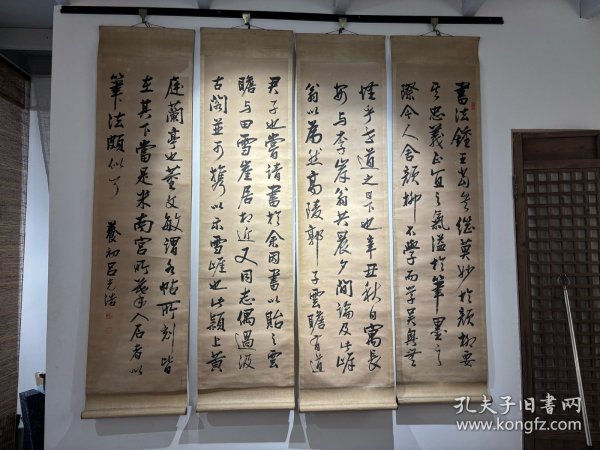 書法鍾王尚矣繼莫妙於顏柳要
其忠義正直之氣溢於筆墨之
際今人舍顏柳不學而學吳興無
怪乎書道之日下也辛丑秋自寓長
安与李岸翁共晨夕間論及此岸
翁以為然高陵郭子雲瞻有道
君子也嘗請書於余因書以貽之雲
瞻与田雪崖居相近又同志偶過汲
古閣並可攜以示雪崖也此潁上黃
庭蘭亭也董文敏謂帖所刻皆
在其下當是米南宮所摹入石者以
筆法頗似耳
養初呂光浩
孔夫子旧书网
www.kongfz.com